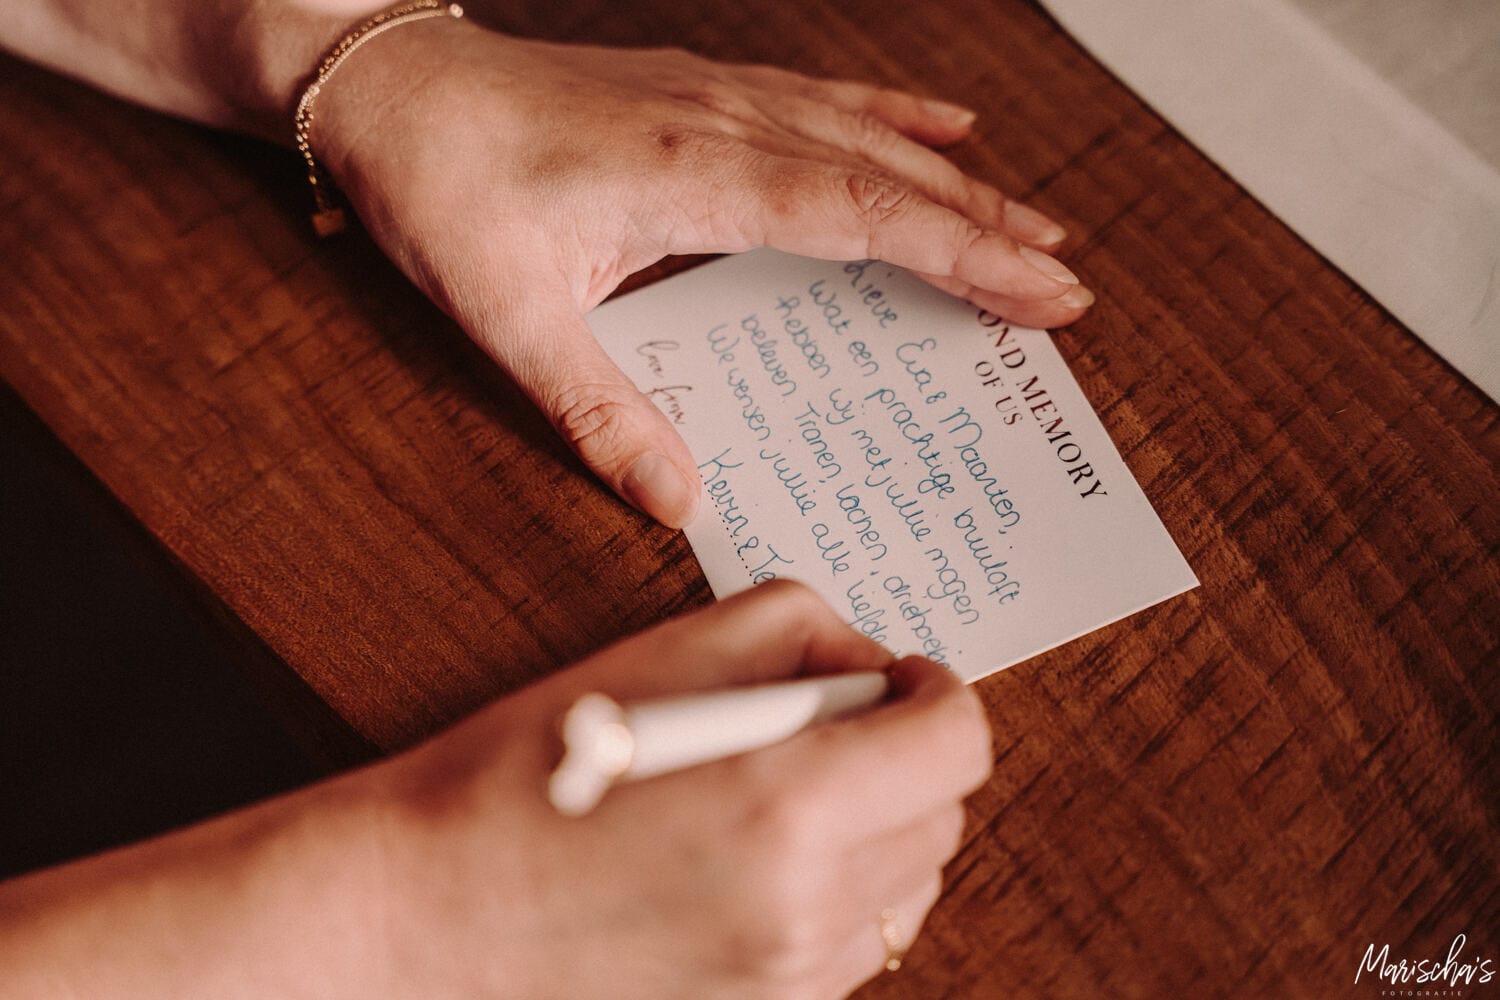 OND MEMORY
OF US
Lieve Eva & Maarten,
Wat een prachtige bruiloft
hebben wij met jullie mogen
beleven. Tranen, lachen, driehoekje
We wensen jullie alle liefde
love from
Kevin & Te
Marischa's
FOTOGRAFIE